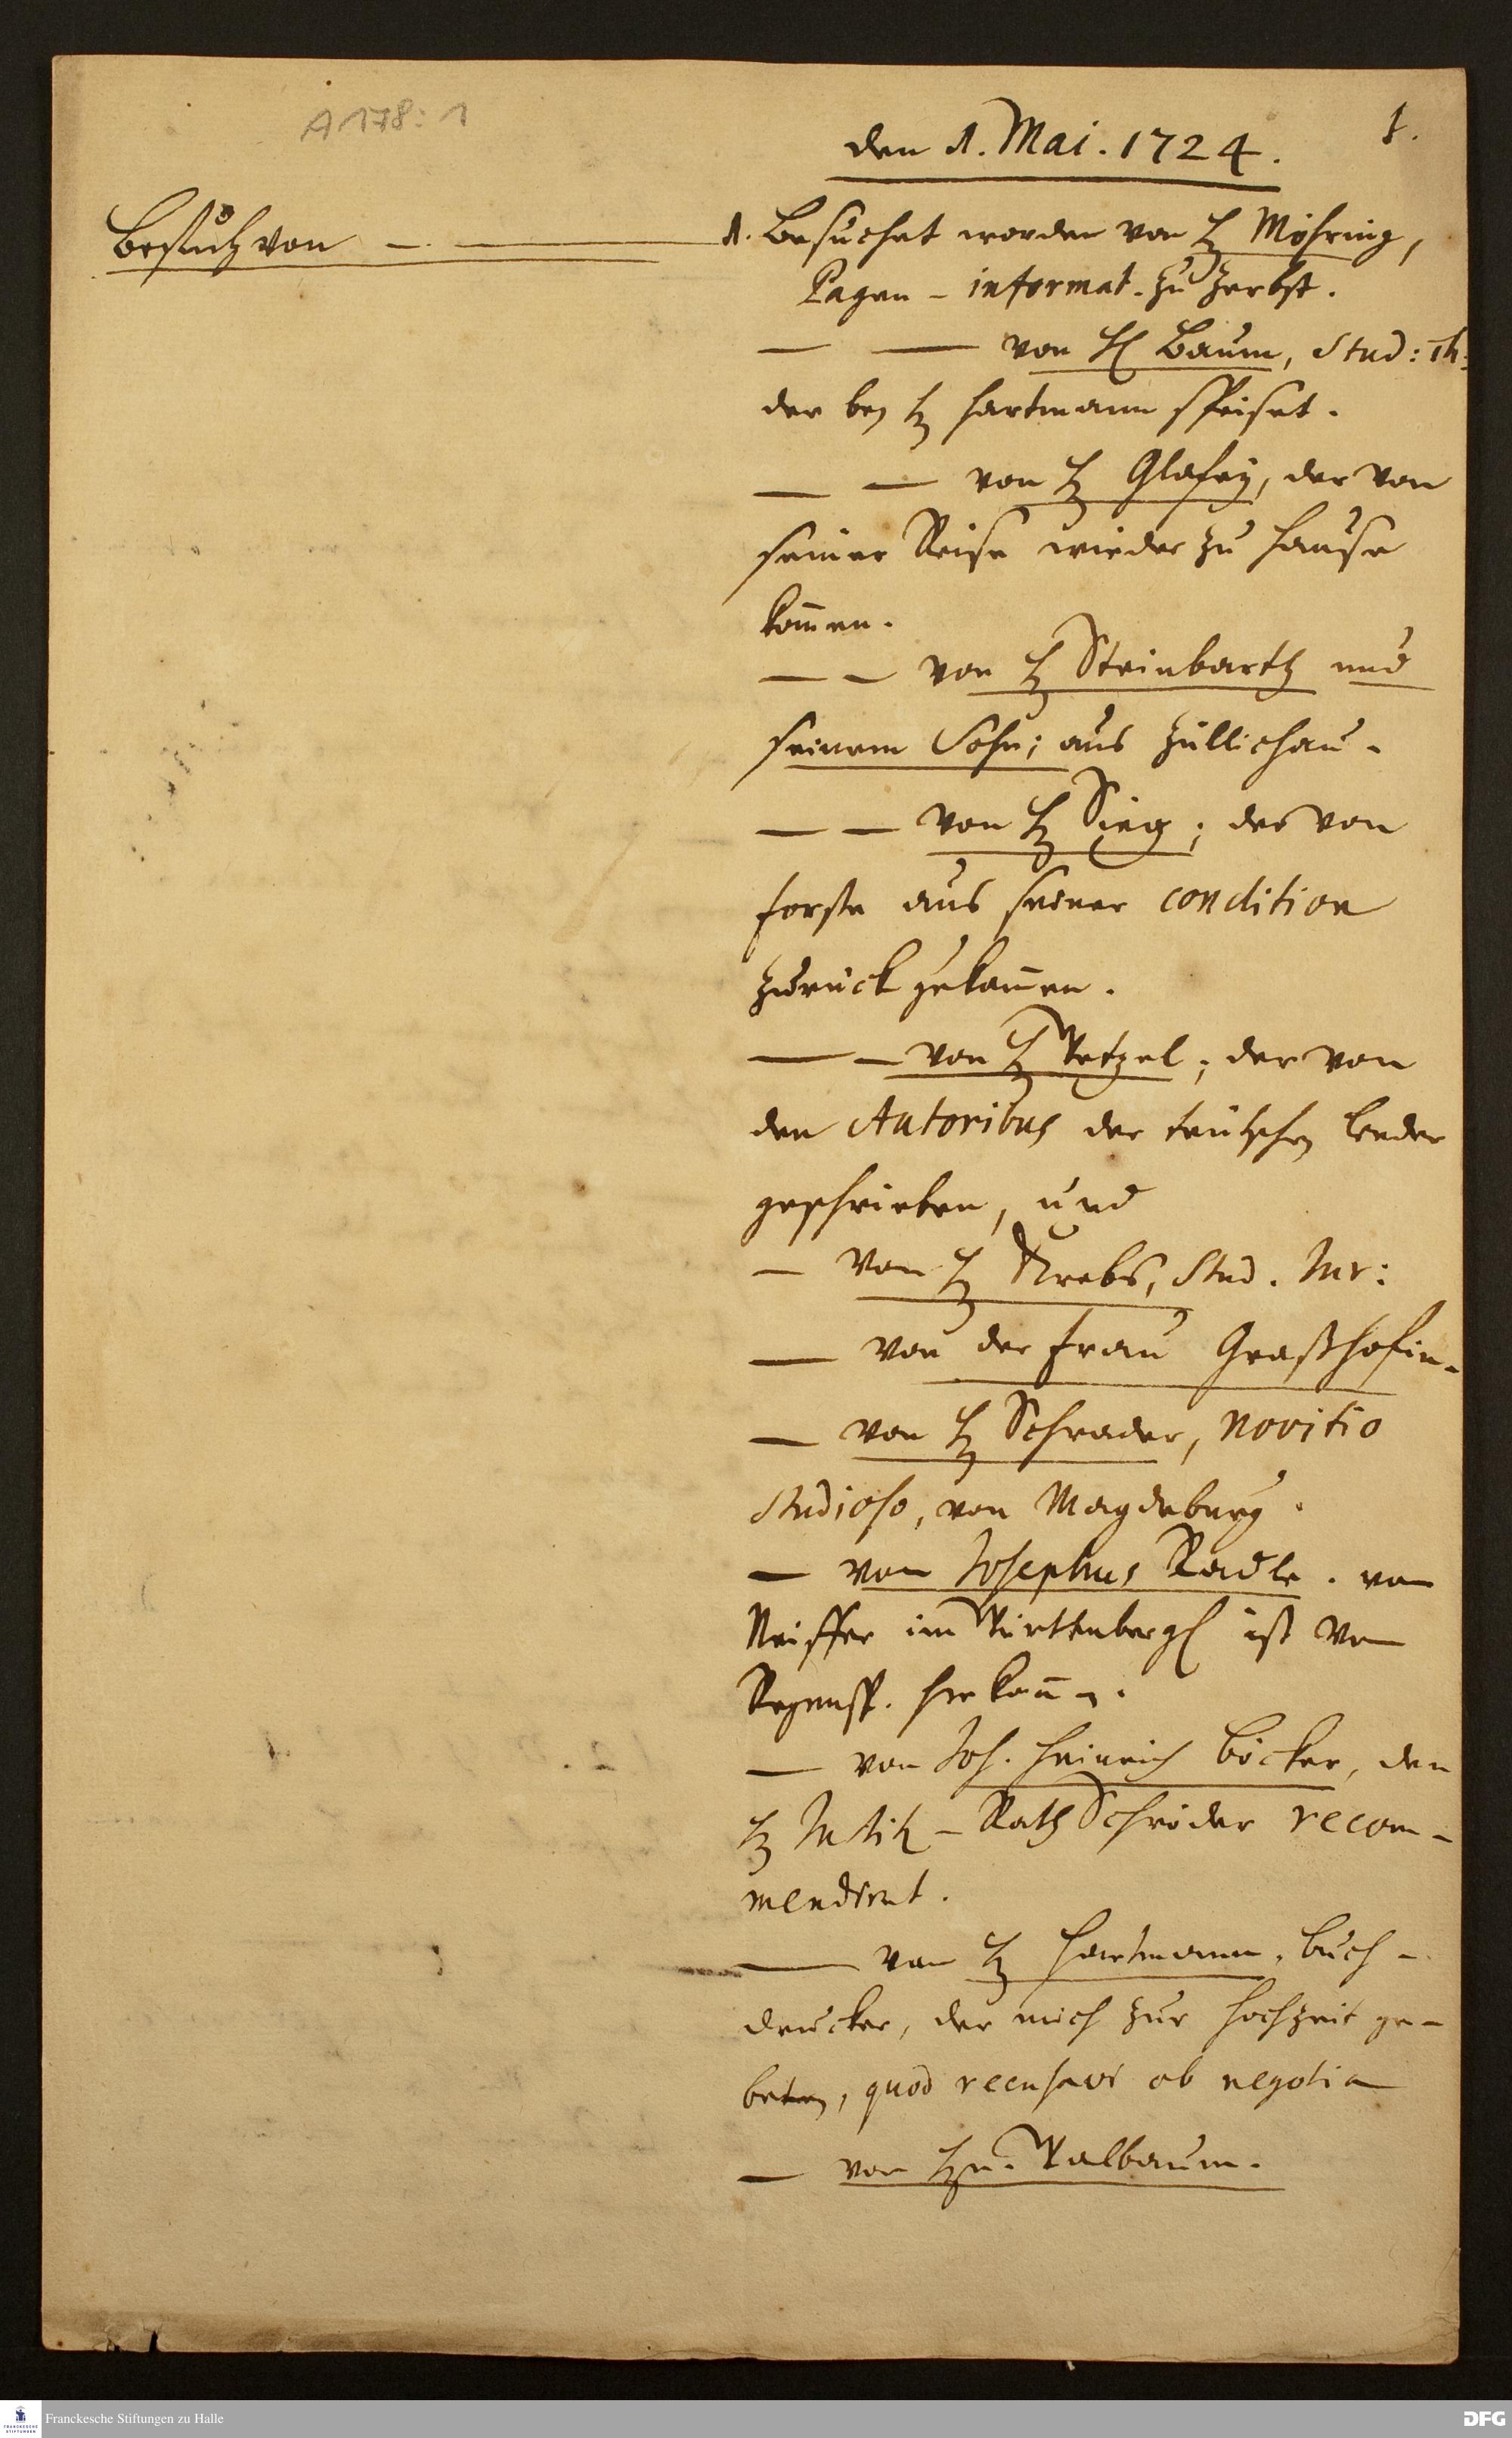 A 178: 1
1.
den 1. Mai. 1724.
Besuch von — —
1. Besuchet worden von H. Möhring,
Pagen - informat. zu Zerbst.
— — von H. Baum, Stud: Th:
der bey H. Hartmann speiset.
— — von H. Glafey, der von
seiner Reise wieder zu Hause
kom̅en.
— — von H. Steinbarth und
seinem Sohn; aus Züllichau.
— — von H. Sieg; der von
Forste aus seiner condition
zurück gekom̅en.
— — von H. Wetzel; der von
den Autoribus der teutschen Lieder
geschrieben, und
— von H. Krebs, Stud. Jur:
— von der Frau Graßhofin.
— von H. Schrader, novitio
studioso, von Magdeburg.
— von Josephus Radle. von
Neiffer im Würtenberg. ist von
Regensp. herkom̅en.
— von Joh. Heinrich Böcker, den
H. Justitz - Rath Schröder recom-
mendiret.
— von H. Hartmann, Buch-
drucker, der mich zur Hochzeit ge-
beten, quod recusavi ob negotia
— von Hn. Walbaum.
Franckesche Stiftungen zu Halle
FRANCKESCHE STIFTUNGEN
DFG